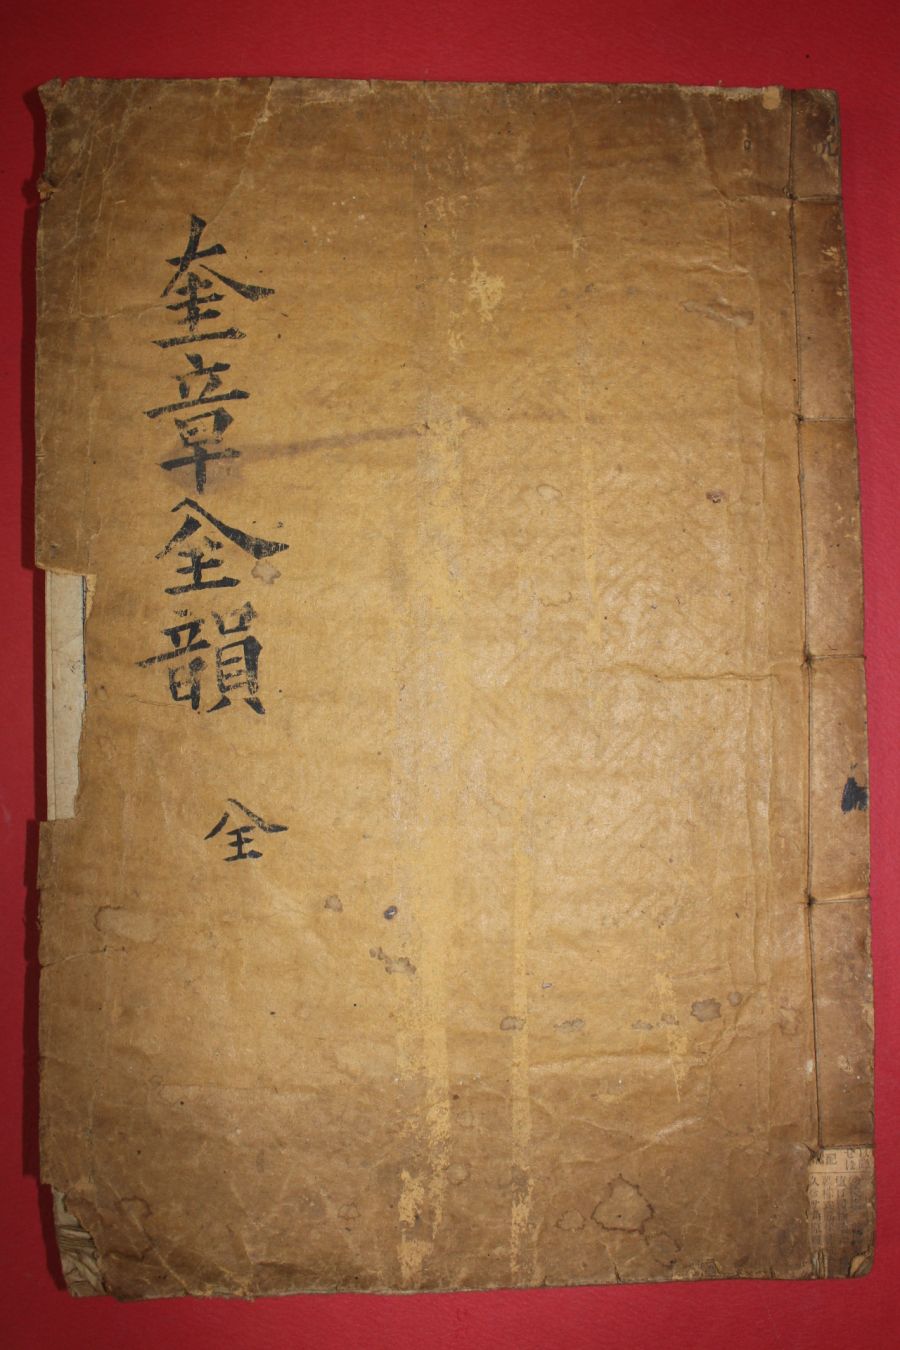 奎章全韻
全